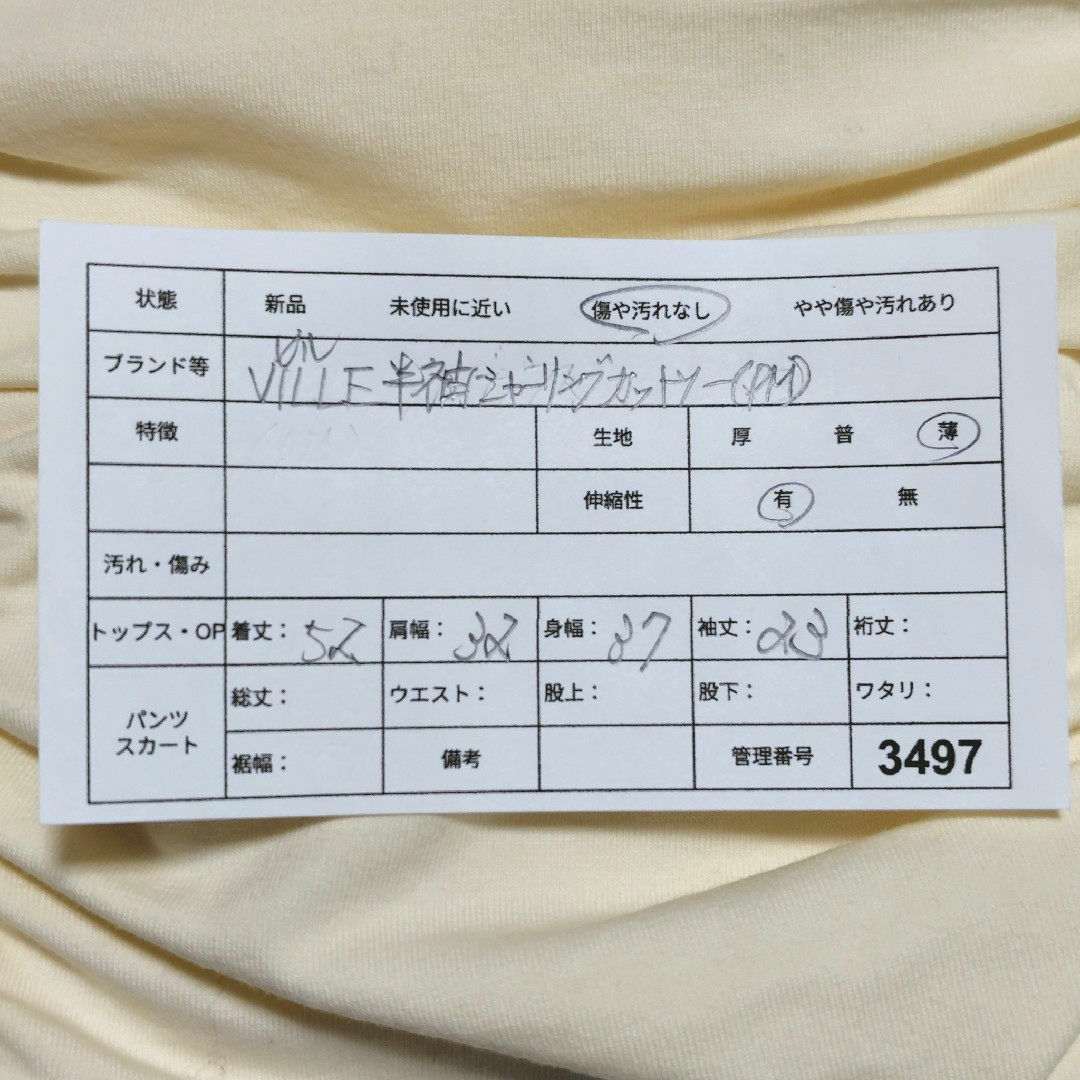 状態 新品 未使用に近い 傷や汚れなし やや傷や汚れあり
ブランド等 VILLE 半袖シャーリングカットソー
特徴 生地 厚 普 薄
伸縮性 有 無
汚れ・傷み
トップス・OP 着丈： 52 肩幅： 32 身幅： 37 袖丈： 23 裄丈：
パンツ スカート 総丈： ウエスト： 股上： 股下： ワタリ：
裾幅： 備考 管理番号 3497